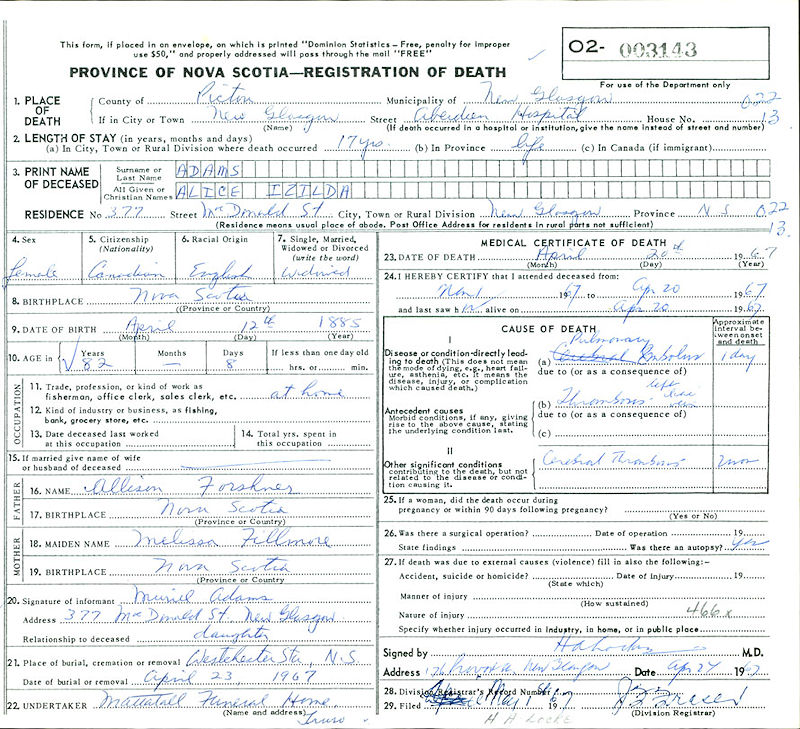 This form, if placed in an envelope, on which is printed "Dominion Statistics – Free, penalty for improper
use $50," and properly addressed will pass through the mail "FREE"
O2- 003143
PROVINCE OF NOVA SCOTIA—REGISTRATION OF DEATH
For use of the Department only
1. PLACE OF DEATH
County of Pictou Municipality of New Glasgow 022
If in City or Town New Glasgow Street Aberdeen Hospital House No. 13
(Name) (If death occurred in a hospital or institution, give the name instead of street and number)
2. LENGTH OF STAY (in years, months and days)
(a) In City, Town or Rural Division where death occurred 17 yrs. (b) In Province life (c) In Canada (if immigrant)
3. PRINT NAME OF DECEASED
Surname or Last Name ADAMS
All Given or Christian Names ALICE IZILDA
RESIDENCE No. 377 Street McDonald St City, Town or Rural Division New Glasgow Province N S 022
(Residence means usual place of abode. Post Office Address for residents in rural parts not sufficient) 13.
4. Sex
female
5. Citizenship (Nationality)
Canadian
6. Racial Origin
English
7. Single, Married, Widowed or Divorced (write the word)
Widowed
8. BIRTHPLACE Nova Scotia
(Province or Country)
9. DATE OF BIRTH April 12th 1885
(Month) (Day) (Year)
10. AGE in
Years 82
Months —
Days 8
If less than one day old
hrs. or min.
OCCUPATION
11. Trade, profession, or kind of work as
fisherman, office clerk, sales clerk, etc. at home
12. Kind of industry or business, as fishing,
bank, grocery store, etc.
13. Date deceased last worked
at this occupation
14. Total yrs. spent in
this occupation
15. If married give name of wife
or husband of deceased
FATHER
16. NAME Allison Forshner
17. BIRTHPLACE Nova Scotia
(Province or Country)
MOTHER
18. MAIDEN NAME Melissa Fillmore
19. BIRTHPLACE Nova Scotia
(Province or Country)
20. Signature of informant Muriel Adams
Address 377 McDonald St. New Glasgow
Relationship to deceased daughter
21. Place of burial, cremation or removal Westchester Sta, N.S
Date of burial or removal April 23 1967
22. UNDERTAKER Mattatall Funeral Home
(Name and address) Truro
MEDICAL CERTIFICATE OF DEATH
23. DATE OF DEATH April 20th 1967
(Month) (Day) (Year)
24. I HEREBY CERTIFY that I attended deceased from:
1967 to Apr 20 1967
and last saw h alive on Apr 20 1967
CAUSE OF DEATH
Approximate interval between onset and death
I
Disease or condition directly leading to death (This does not mean the mode of dying, e.g., heart failure, asthenia, etc. It means the disease, injury, or complication which caused death.)
Pulmonary
(a) Embolus 1 day
due to (or as a consequence of)
Antecedent causes
Morbid conditions, if any, giving rise to the above cause, stating the underlying condition last.
left iliac
(b) Thrombosis vein
due to (or as a consequence of)
(c)
II
Other significant conditions
contributing to the death, but not related to the disease or condition causing it.
Cerebral Thrombosis 2 mos
25. If a woman, did the death occur during
pregnancy or within 90 days following pregnancy?
(Yes or No)
26. Was there a surgical operation? Date of operation 19
State findings Was there an autopsy? yes
27. If death was due to external causes (violence) fill in also the following:-
Accident, suicide or homicide? Date of Injury 19
(State which)
Manner of injury
(How sustained)
Nature of injury 466x
Specify whether injury occurred in industry, in home, or in public place
Signed by H A Locke M.D.
Address 126 Provost St. New Glasgow Date Apr 24 1967
28. Division Registrar's Record Number
29. Filed May 1st 1967
(Division Registrar)
H A LOCKE